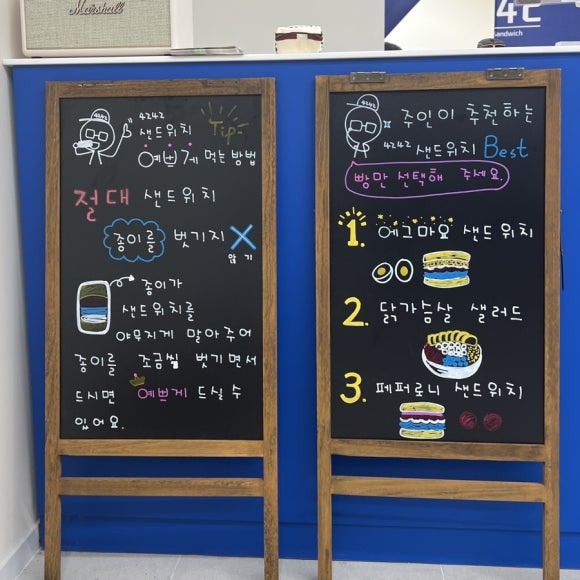 Marshall
4℃
Sandwich
4242
4242
샌드위치 Tip
예쁘게 먹는 방법
절대 샌드위치
종이를 벗기지 X
않기
종이가
샌드위치를
야무지게 말아주어
종이를 조금씩 벗기면서
드시면 예쁘게 드실 수
있어요.
4242
주인이 추천하는
4242 샌드위치 Best
빵만 선택해 주세요.
1. 에그마요 샌드위치
2. 닭가슴살 샐러드
3. 페퍼로니 샌드위치